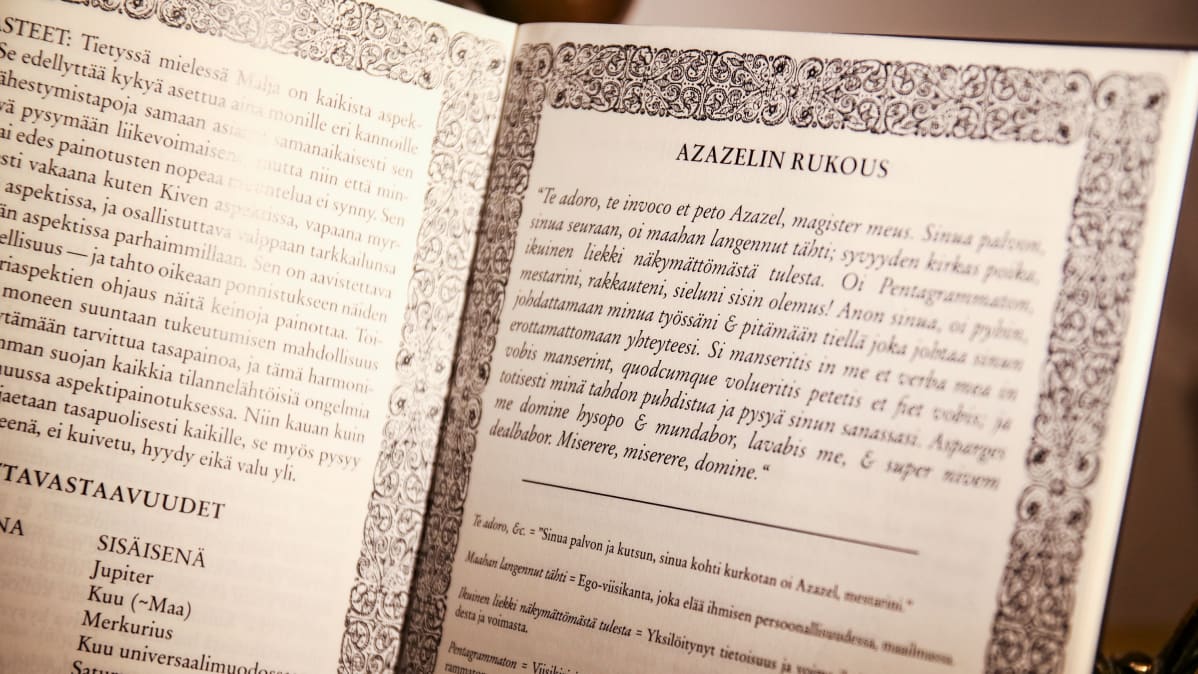 ASTEET: Tietyssä mielessä Malja on kaikista aspek-
Se edellyttää kykyä asettua aina monille eri kannoille
ähestymistapoja samaan samanaikaisesti sen
vä pysymään liikevoimaisena mutta niin että min-
ai edes painotusten nopeaa ei synny. Sen
esti vakaana kuten Kiven aspektissa, vapaana myr-
aspektissa, ja osallistuttava valppaan tarkkailunsa
än aspektissa parhaimmillaan. Sen on aavistettava
ellisuus — ja tahto oikeaan ponnistukseen näiden
riaspektien ohjaus näitä keinoja painottaa. Toi-
moneen suuntaan tukeutumisen mahdollisuus
ytämään tarvittua tasapainoa, ja tämä harmoni-
man suojan kaikkia tilannelähtöisiä ongelmia
uussa aspektipainotuksessa. Niin kauan kuin
jaetaan tasapuolisesti kaikille, se myös pysyy
eenä, ei kuivetu, hyydy eikä valu yli.
TAVASTAAVUUDET
NA
SISÄISENÄ
Jupiter
Kuu (~Maa)
Merkurius
Kuu universaalimuodoss
Satur
AZAZELIN RUKOUS
"Te adoro, te invoco et peto Azazel, magister meus. Sinua palvon,
sinua seuraan, oi maahan langennut tähti; syvyyden kirkas poika,
ikuinen liekki näkymättömästä tulesta. Oi Pentagrammaton,
mestarini, rakkauteni, sieluni sisin olemus! Anon sinua, oi pyhin,
johdattamaan minua työssäni & pitämään tiellä joka johtaa sinun
erottamattomaan yhteyteesi. Si manseritis in me et verba mea in
vobis manserint, quodcumque volueritis petetis et fiet vobis; ja
totisesti minä tahdon puhdistua ja pysyä sinun sanassasi. Asparges
me domine hysopo & mundabor, lavabis me, & super nivem
dealbabor. Miserere, miserere, domine."
Te adoro, &c. = "Sinua palvon ja kutsun, sinua kohti kurkotan oi Azazel, mestarini."
Maahan langennut tähti = Ego-viisikanta, joka elää ihmisen persoonallisuudessa, maailmassa.
Ikuinen liekki näkymättömästä tulesta = Yksilöitynyt tietoisuus ja
desta ja voimasta.
Pentagrammaton =